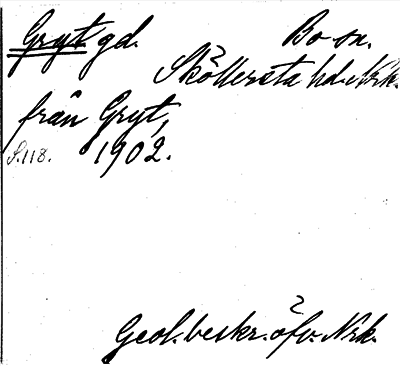 Gryt gd. Bo sn.
Sköllersta hd. Nrk.
från Gryt,
S. 118. 1902.
Geol. beskr. öfv. Nrk.